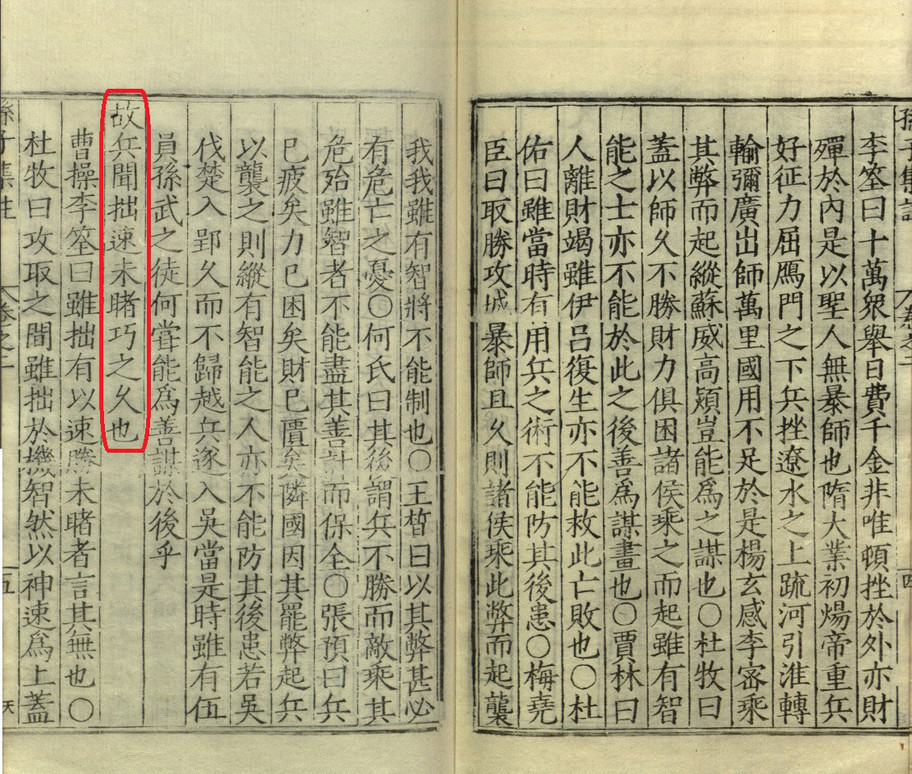 李筌曰十萬衆舉日費千金非唯頓挫於外亦財
殫於內是以聖人無暴師也隋大業初煬帝重兵
好征力屈鴈門之下兵挫遼水之上疏河引淮轉
輸彌廣出師萬里國用不足於是楊玄感李密乘
其弊而起縱蘇威高熲豈能爲之謀也〇杜牧曰
蓋以師久不勝財力俱困諸侯乘之而起雖有智
能之士亦不能於此之後善爲謀畫也〇賈林曰
人離財竭雖伊呂復生亦不能救此亡敗也〇杜
佑曰雖當時有用兵之術不能防其後患〇梅堯
臣曰取勝攻城暴師且久則諸侯乘此弊而起襲
我我雖有智將不能制也〇王晳曰以其弊甚必
有危亡之憂〇何氏曰其後謂兵不勝而敵乘其
危殆雖智者不能盡其善計而保全〇張預曰兵
已疲矣力已困矣財已匱矣隣國因其罷弊起兵
以襲之則縱有智能之人亦不能防其後患若吳
伐楚入郢久而不歸越兵遂入吳當是時雖有伍
員孫武之徒何嘗能爲善謀於後乎
故兵聞拙速未睹巧之久也
曹操李筌曰雖拙有以速勝未睹者言其無也〇
杜牧曰攻取之間雖拙於機智然以神速爲上蓋